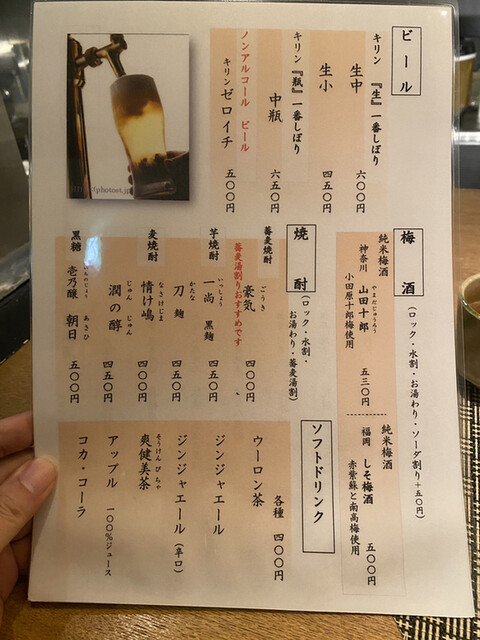 ビール
キリン 『生』一番しぼり
生中 六〇〇円
生小 四五〇円
キリン 『瓶』一番しぼり
中瓶 六五〇円
ノンアルコール ビール
キリン ゼロイチ 五〇〇円
梅酒
(ロック・水割・お湯わり・ソーダ割り+五〇円)
純米梅酒
神奈川 山田十郎 五三〇円
やまだじゅうろう
小田原十郎梅使用
純米梅酒
福岡 しそ梅酒 五〇〇円
赤紫蘇と南高梅使用
焼酎
(ロック・水割・お湯わり・蕎麦湯割)
蕎麦焼酎 豪気 四〇〇円
ごうき
蕎麦湯割りおすすめです
芋焼酎 一尚 黒麹 四五〇円
いっしょう
刀 麹 四五〇円
かたな
麦焼酎 情け嶋 四〇〇円
なさけじま
潤の醇 四五〇円
じゅん じゅん
黒糖 壱乃醸 朝日 五〇〇円
いちのじょう あさひ
ソフトドリンク
各種 四〇〇円
ウーロン茶
ジンジャエール
ジンジャエール(辛口)
爽健美茶
そうけんびちゃ
アップル 一〇〇%ジュース
コカ・コーラ